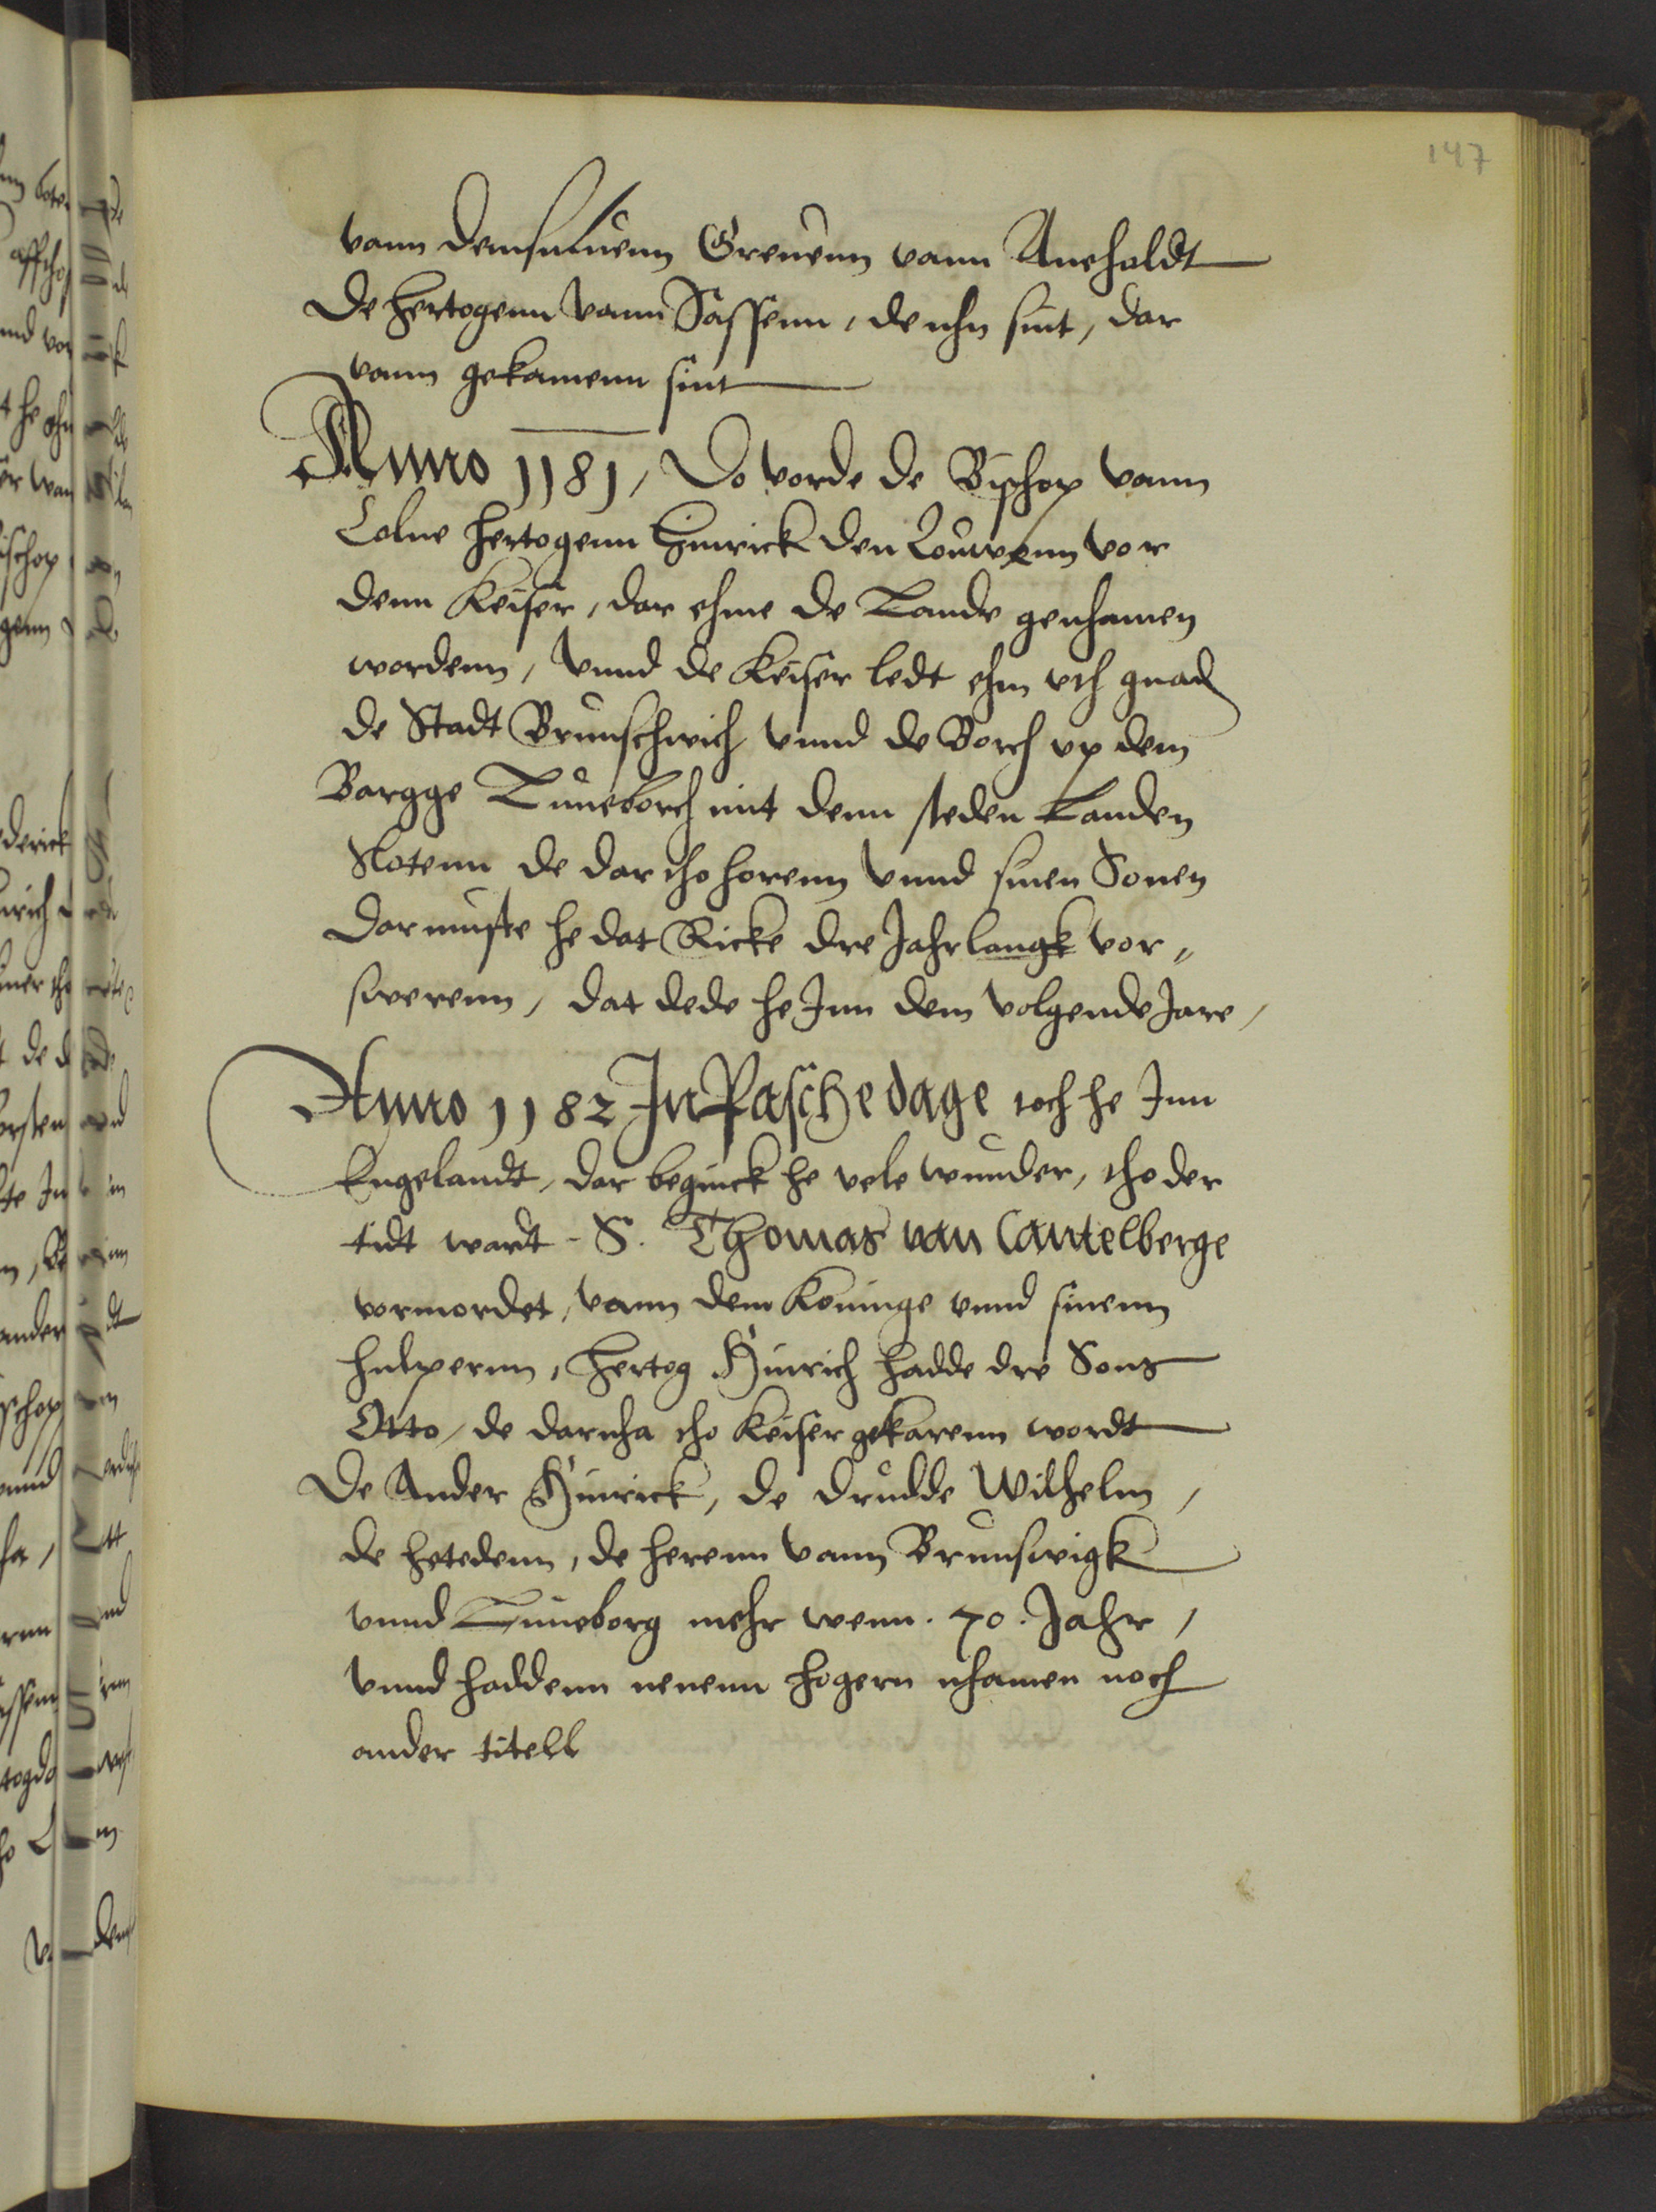 147
vann demsuluenn Greuenn vann Aneholdt
De Hertogenn vann Sassenn, de nhu sint, dar
vann gekamenn sint
Anno 1181, Do vorde de Bischop vann
Colne Hertogenn Hinrick den Louwenn vor
denn Keiser, dar ehme de Lande genhamen
wordenn, vnnd de Keiser ledt ehm vth gnad
de Stadt Brunschwich vnnd de Borch vp dem
Bargge Luneborch mit denn steden Landen
Slotenn de dar tho horenn vnnd sinen Sonen
Dar muste he dat Ricke dre Jahrlangk vor„
swerenn, dat dede he Inn dem volgende Jare,
Anno 1182 In Paschedage toch he Inn
Engelandt, dar beginck he vele wunder, tho der
tidt wardt S. Thomas van Cantelberge
vormordet, vann dem Koninge vnnd sinenn
hulperenn, Hertog Hinrich hadde dre Sons
Otto, de darnha tho Keiser gekarenn wordt
De Ander Hinrick, de drudde Wilhelm,
de hetedenn, de herenn vann Brunswigk
vnnd Luneborg mehr wenn . 70 . Jahr,
vnnd haddenn nenenn hogern nhamen noch
ander titell